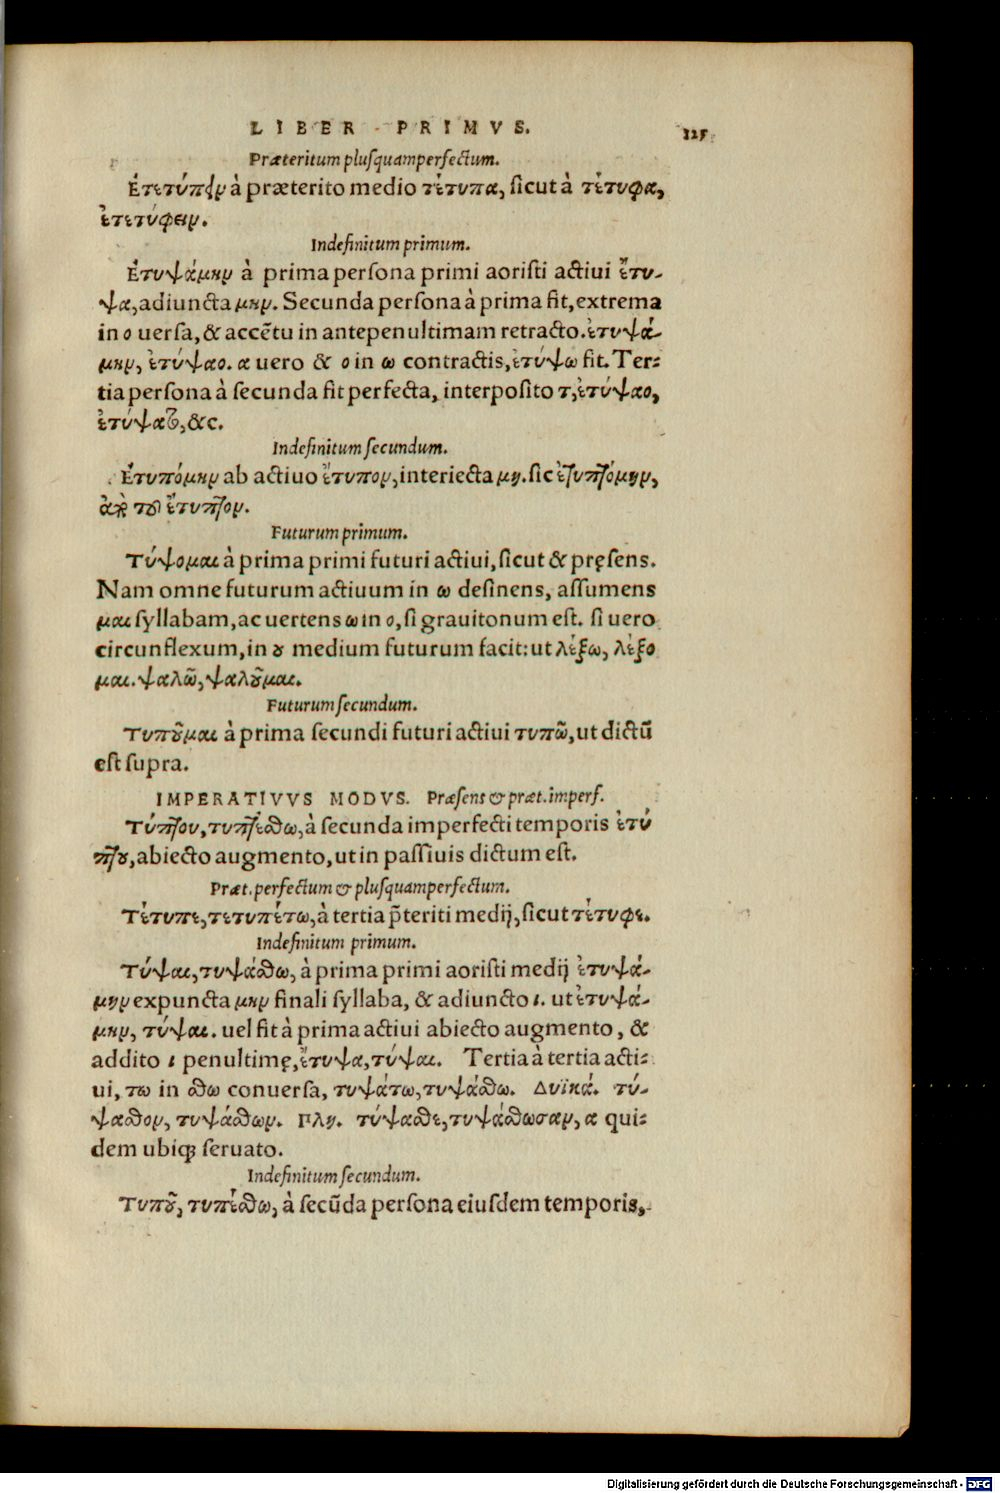 LIBER PRIMVS. 125
Præteritum plusquamperfectum.
Ἐτετύπειν à præterito medio τέτυπα, sicut à τέτυφα,
ἐτετύφειν.
Indefinitum primum.
Ἐτυψάμην à prima persona primi aoristi actiui ἔτυ-
ψα, adiuncta μην. Secunda persona à prima fit, extrema
in ο uersa, & accẽtu in antepenultimam retracto. ἐτυψά-
μην, ἐτύψαο. α uero & ο in ω contractis, ἐτύψω fit. Ter-
tia persona à secunda fit perfecta, interposito τ, ἐτύψαο,
ἐτύψατο, &c.
Indefinitum secundum.
Ἐτυπόμην ab actiuo ἔτυπον, interiecta μη. sic ἐτυπτόμην,
ἀπὸ τοῦ ἔτυπτον.
Futurum primum.
Τύψομαι à prima primi futuri actiui, sicut & pręsens.
Nam omne futurum actiuum in ω desinens, assumens
μαι syllabam, ac uertens ω in ο, si grauitonum est. si uero
circunflexum, in ȣ medium futurum facit: ut λέξω, λέξο
μαι. ψαλῶ, ψαλοῦμαι.
Futurum secundum.
Τυποῦμαι à prima secundi futuri actiui τυπῶ, ut dictũ
est supra.
IMPERATIVVS MODVS. Præsens & præt. imperf.
Τύπτου, τυπτέσθω, à secunda imperfecti temporis ἐτύ
πτου, abiecto augmento, ut in passiuis dictum est.
Præt. perfectum & plusquamperfectum.
Τέτυπε, τετυπέτω, à tertia p̃teriti medij, sicut τέτυφε.
Indefinitum primum.
Τύψαι, τυψάσθω, à prima primi aoristi medij ἐτυψά-
μην expuncta μην finali syllaba, & adiuncto ι. ut ἐτυψά-
μην, τύψαι. uel fit à prima actiui abiecto augmento, &
addito ι penultimę, ἔτυψα, τύψαι. Tertia à tertia acti-
ui, τω in σθω conuersa, τυψάτω, τυψάσθω. Δυϊκά. τύ-
ψασθον, τυψάσθων. Πλη. τύψασθε, τυψάσθωσαν, α qui-
dem ubiqȝ seruato.
Indefinitum secundum.
Τυποῦ, τυπέσθω, à secũda persona eiusdem temporis,
Digitalisierung gefördert durch die Deutsche Forschungsgemeinschaft - DFG